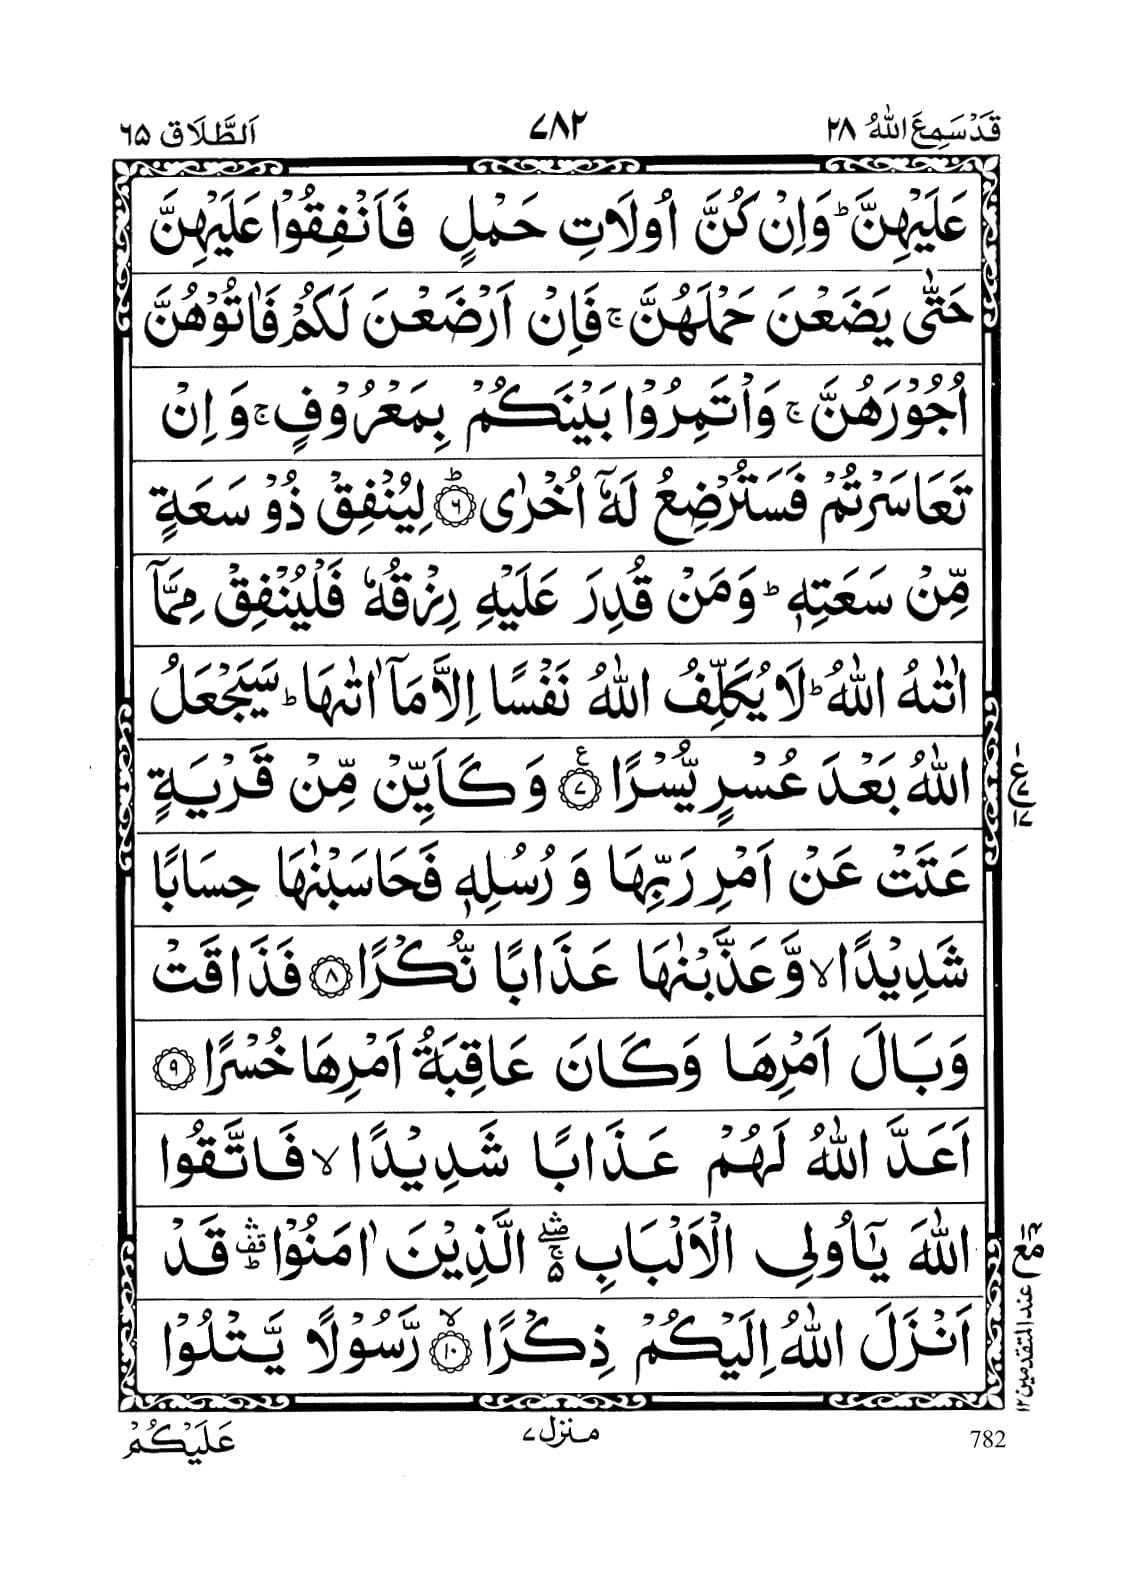 قَدْ سَمِعَ اللّٰهُ ٢٨
٧٨٢
اَلطَّلَاق ٦٥
عَلَيْهِنَّ ؕ وَاِنْ كُنَّ اُولَاتِ حَمْلٍ فَاَنْفِقُوْا عَلَيْهِنَّ
حَتّٰى يَضَعْنَ حَمْلَهُنَّ ۚ فَاِنْ اَرْضَعْنَ لَكُمْ فَاٰتُوْهُنَّ
اُجُوْرَهُنَّ ۚ وَاْتَمِرُوْا بَيْنَكُمْ بِمَعْرُوْفٍ ۚ وَ اِنْ
تَعَاسَرْتُمْ فَسَتُرْضِعُ لَهٗۤ اُخْرٰى ؕ﴿٦﴾ لِيُنْفِقْ ذُوْ سَعَةٍ
مِّنْ سَعَتِهٖ ؕ وَمَنْ قُدِرَ عَلَيْهِ رِزْقُهٗ فَلْيُنْفِقْ مِمَّاۤ
اٰتٰىهُ اللّٰهُ ؕ لَا يُكَلِّفُ اللّٰهُ نَفْسًا اِلَّا مَاۤ اٰتٰىهَا ؕ سَيَجْعَلُ
اللّٰهُ بَعْدَ عُسْرٍ يُّسْرًا ﴿٧﴾ ع وَ كَاَيِّنْ مِّنْ قَرْيَةٍ
ع
١٧
عَتَتْ عَنْ اَمْرِ رَبِّهَا وَ رُسُلِهٖ فَحَاسَبْنٰهَا حِسَابًا
شَدِيْدًا ۙ وَّعَذَّبْنٰهَا عَذَابًا نُّكْرًا ﴿٨﴾ فَذَاقَتْ
وَبَالَ اَمْرِهَا وَكَانَ عَاقِبَةُ اَمْرِهَا خُسْرًا ﴿٩﴾
اَعَدَّ اللّٰهُ لَهُمْ عَذَابًا شَدِيْدًا ۙ فَاتَّقُوا
اللّٰهَ يٰۤاُولِى الْاَلْبَابِ ۛۚ الَّذِيْنَ اٰمَنُوْا ۛؕ قَدْ
مع
عند المتقدمين ١٢
اَنْزَلَ اللّٰهُ اِلَيْكُمْ ذِكْرًا ۙ﴿١٠﴾ رَّسُوْلًا يَّتْلُوْا
عَلَيْكُمْ
منزل ٧
782